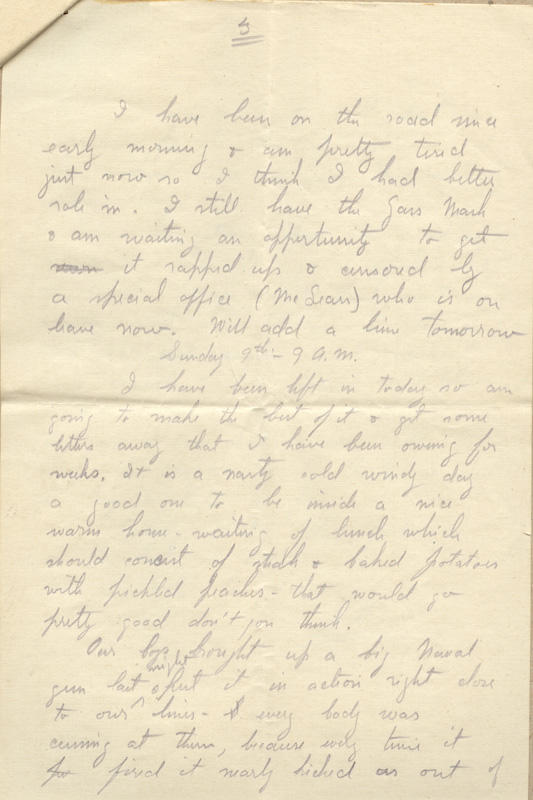 5
I have been on the road since
early morning & am pretty tired
just now so I think I had better
role in. I still have the Gass Mask
& am waiting an opportunity to get
it rapped up & censored by
a special office (McLean) who is on
leave now. Will add a line tomorrow
Sunday 9th - 9 A.M.
I have been left in today so am
going to make the best of it & get some
letters away that I have been owing for
weeks. It is a nasty cold windy day
a good one to be inside a nice
warm home - waiting of lunch which
should consist of steak & baked potatoes
with pickled peaches - that would go
pretty good don't you think.
Our boys brought up a big Naval
gun last night & put it in action right close
to our lines - & every body was
cussing at them, because every time it
fired it nearly kicked us out of